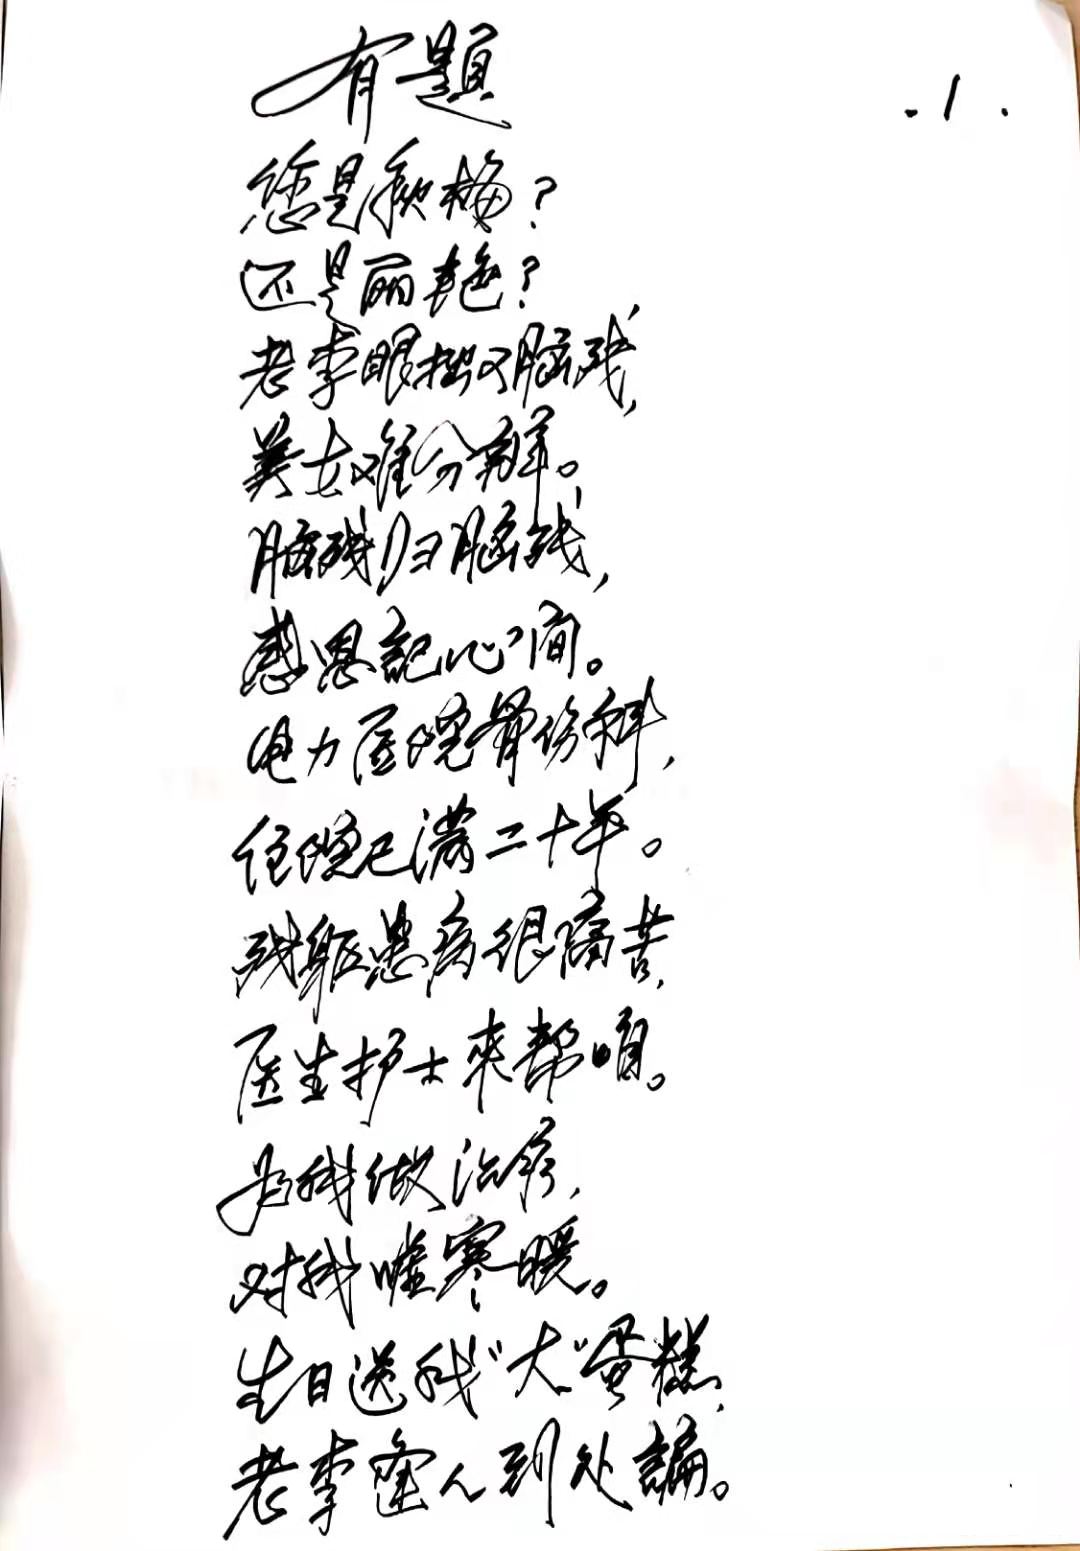 有题
.1.
您是秋梅?
还是丽艳?
老李眼拙又脑残,
美女难分辨。
脑残归脑残,
感恩記心间。
电力医院骨伤科,
住院已满二十年。
残躯患病很痛苦,
医生护士来帮咱。
为我做治疗,
对我嘘寒暖。
生日送我“大”蛋糕,
老李逢人到处諞。